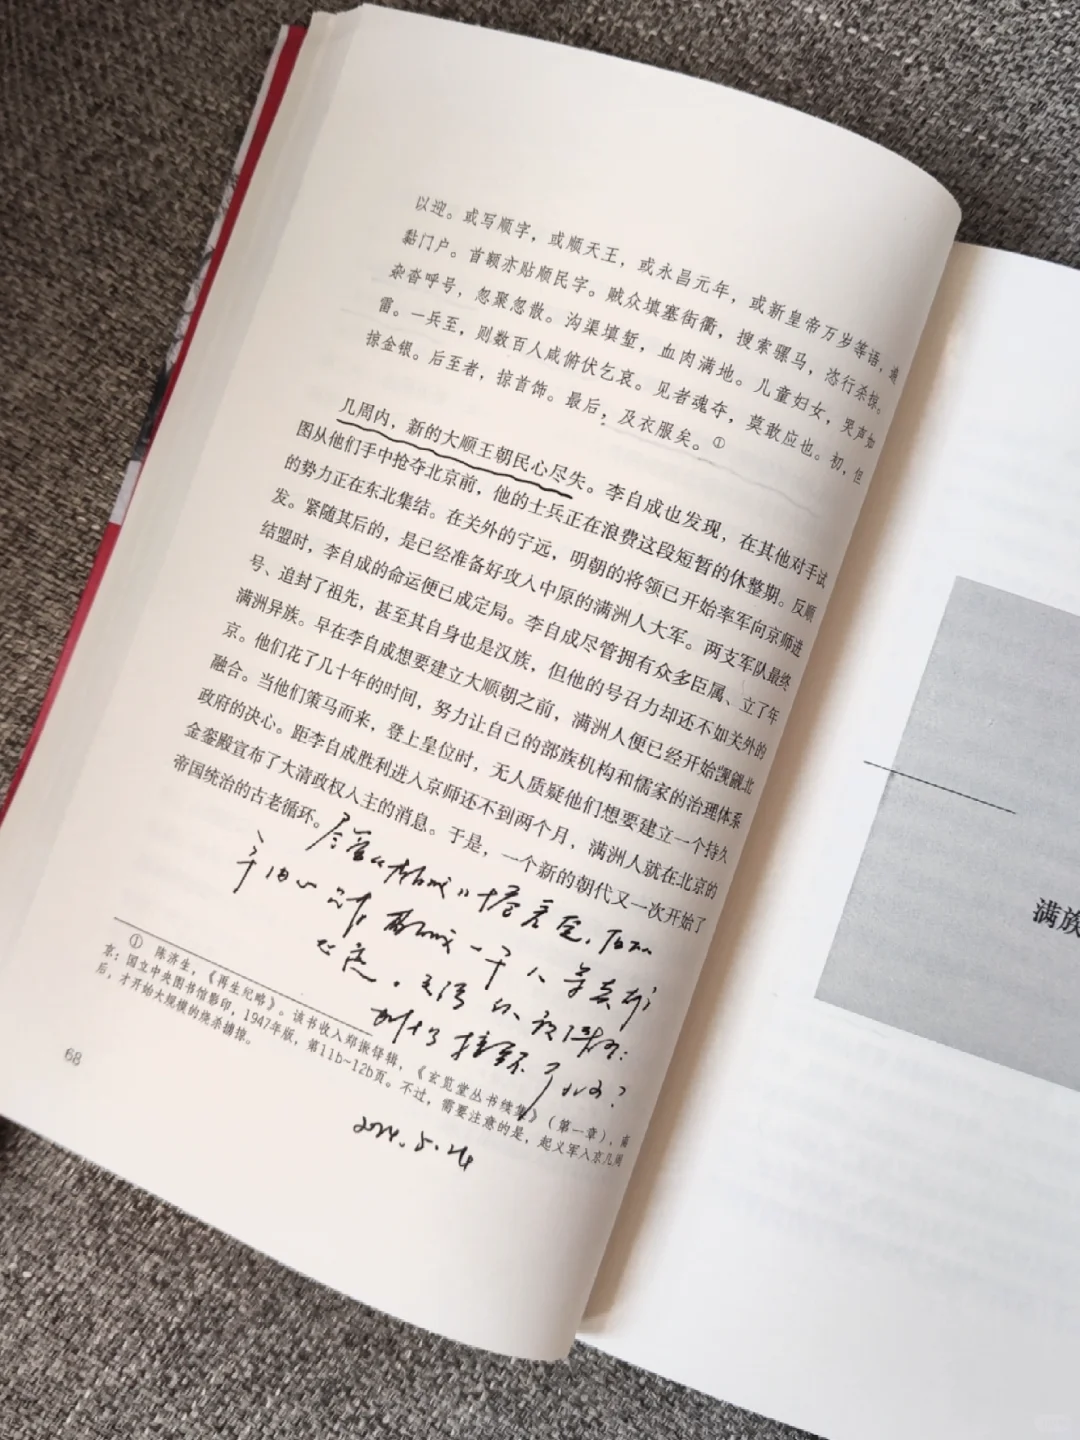 以迎。或写顺字，或顺天王，或永昌元年，或新皇帝万岁等语，遍
黏门户。首颡亦贴顺民字。贼众填塞街衢，搜索骡马，恣行杀掠。
杂沓呼号，忽聚忽散。沟渠填堑，血肉满地。儿童妇女，哭声如
雷。一兵至，则数百人咸俯伏乞哀。见者魂夺，莫敢应也。初，但
掠金银。后至者，掠首饰。最后，及衣服矣。①
几周内，新的大顺王朝民心尽失。李自成也发现，在其他对手试
图从他们手中抢夺北京前，他的士兵正在浪费这段短暂的休整期。反顺
的势力正在东北集结。在关外的宁远，明朝的将领已开始率军向京师进
发。紧随其后的，是已经准备好攻入中原的满洲人大军。两支军队最终
结盟时，李自成的命运便已成定局。李自成尽管拥有众多臣属、立了年
号、追封了祖先，甚至其自身也是汉族，但他的号召力却还不如关外的
满洲异族。早在李自成想要建立大顺朝之前，满洲人便已经开始觊觎北
京。他们花了几十年的时间，努力让自己的部族机构和儒家的治理体系
融合。当他们策马而来，登上皇位时，无人质疑他们想要建立一个持久
政府的决心。距李自成胜利进入京师还不到两个月，满洲人就在北京的
金銮殿宣布了大清政权入主的消息。于是，一个新的朝代又一次开始了
帝国统治的古老循环。
尽管
一个人
2024.5.24
① 陈济生，《再生纪略》。该书收入郑振铎辑，《玄览堂丛书续集》（第一章），南
京：国立中央图书馆影印，1947年版，第11b~12b页。不过，需要注意的是，起义军入京几周
后，才开始大规模的烧杀掳掠。
68
满族